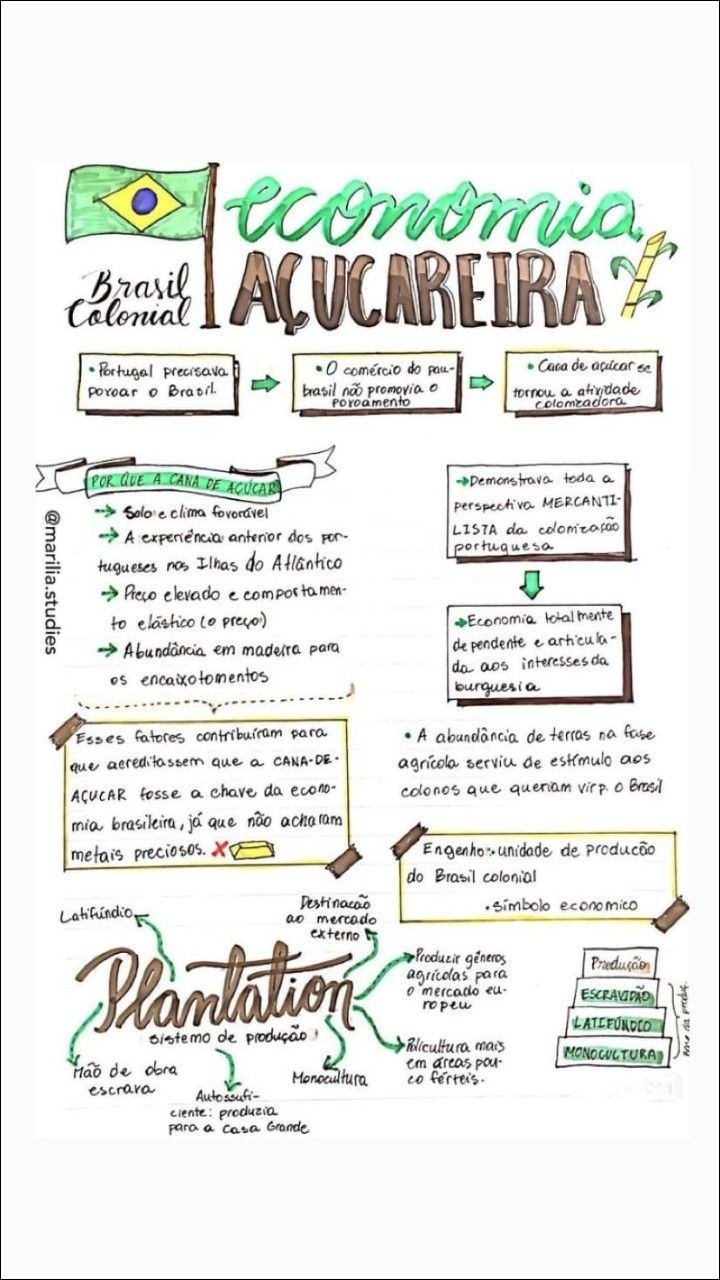 economia
AÇUCAREIRA
Brasil
Colonial
• Portugal precisava
povoar o Brasil.
• O comércio do pau-
brasil não promovia o
povoamento
• Cana de açúcar se
tornou a atividade
colonizadora
POR QUE A CANA DE AÇÚCAR
→ Solo e clima favorável
→ A experiência anterior dos por-
tugueses nas Ilhas do Atlântico
→ Preço elevado e comportamen-
to elástico (o preço)
→ Abundância em madeira para
os encaixotamentos
@marilia.studies
Esses fatores contribuíram para
que acreditassem que a CANA-DE-
AÇUCAR fosse a chave da econo-
mia brasileira, já que não acharam
metais preciosos.
→ Demonstrava toda a
perspectiva MERCANTI-
LISTA da colonização
portuguesa
→ Economia totalmente
dependente e articula-
da aos interesses da
burguesia
• A abundância de terras na fase
agrícola serviu de estímulo aos
colonos que queriam vir p. o Brasil
Engenho: unidade de producão
do Brasil colonial
• símbolo economico
Plantation
sistema de produção
Latifúndio
Destinacão
ao mercado
externo
Produzir gêneros
agrícolas para
o mercado eu-
ropeu
Policultura mais
em áreas pou-
co férteis.
Monocultura
Autossufi-
ciente: produzia
para a Casa Grande
Mão de obra
escrava
Produção
ESCRAVIDÃO
LATIFÚNDIO
MONOCULTURA